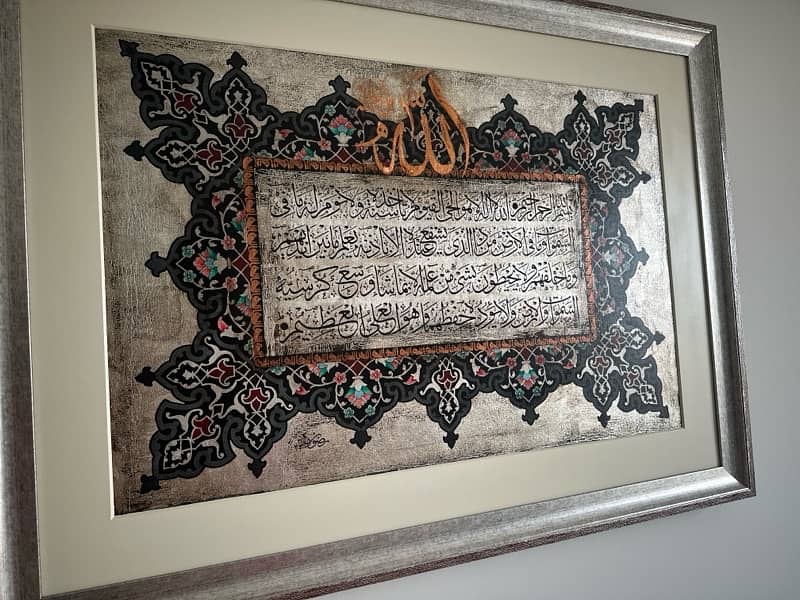 الله
بسم الله الرحمن الرحيم الله لا اله الا هو الحي القيوم لا تاخذه سنة ولا نوم له ما في
السموات وما في الارض من ذا الذي يشفع عنده الا باذنه يعلم ما بين ايديهم
وما خلفهم ولا يحيطون بشئ من علمه الا بما شاء وسع كرسيه
السموات والارض ولا يؤده حفظهما وهو العلي العظيم